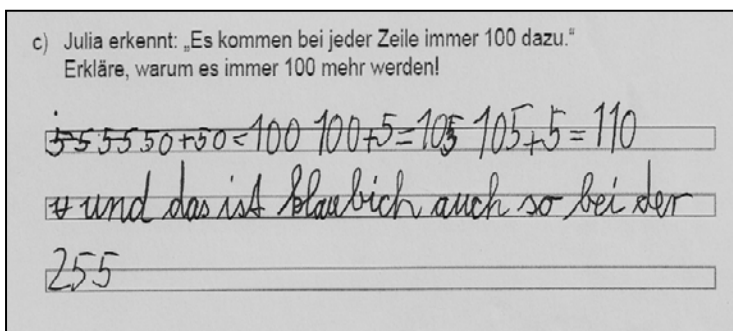 c) Julia erkennt: „Es kommen bei jeder Zeile immer 100 dazu.“
Erkläre, warum es immer 100 mehr werden!
55 55 50+50=100 100+5=105 105+5=110
und das ist klaubich auch so bei der
255